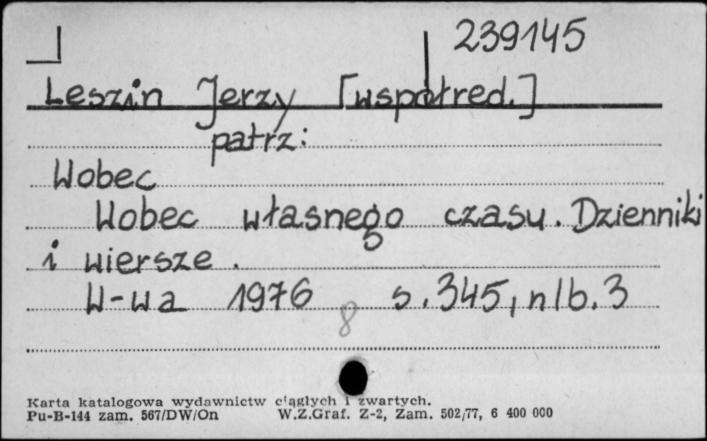 239145
Leszin Jerzy [współred.]
patrz:
Wobec
Wobec własnego czasu. Dzienniki
i wiersze.
W-wa 1976 s. 345, nlb. 3
8
Karta katalogowa wydawnictw ciągłych i zwartych.
Pu-B-144 zam. 567/DW/On W.Z.Graf. Z-2, Zam. 502/77, 6 400 000